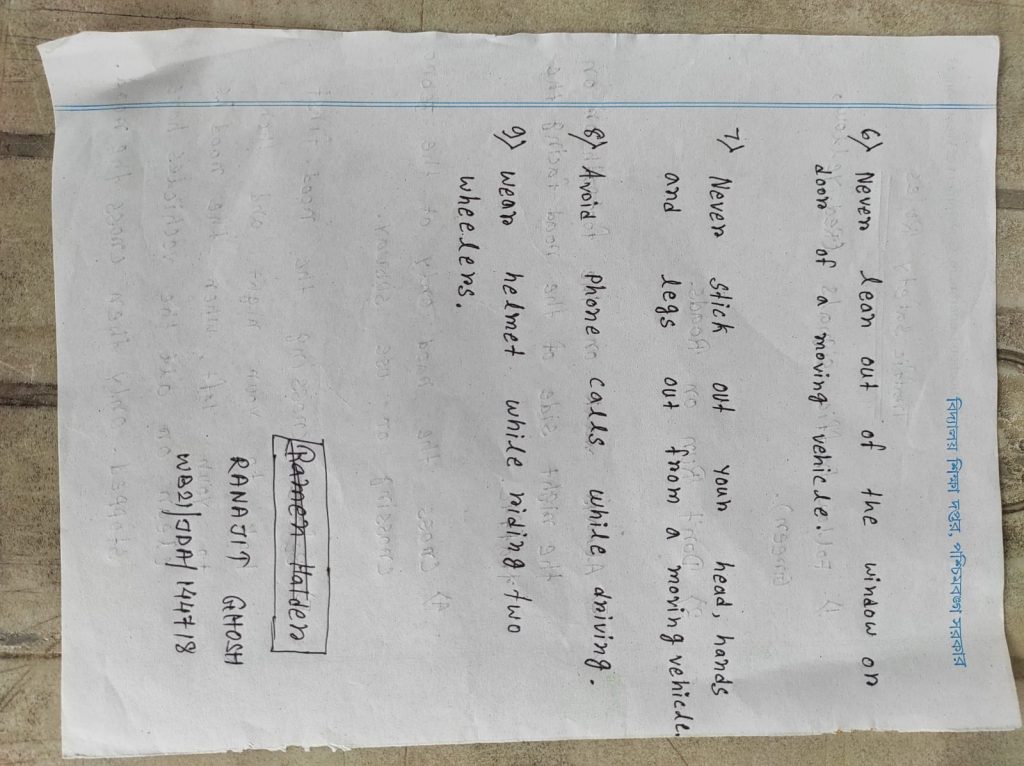 বিদ্যালয় শিক্ষা দপ্তর, পশ্চিমবঙ্গ সরকার
6) Never lean out of the window or
door of a moving vehicle.
7) Never stick out your head, hands
and legs out from a moving vehicle.
8) Avoid phone calls while driving.
9) wear helmet while riding two
wheelers.
Ramen Halder
RANAJIT GHOSH
WB21/JDA/144718